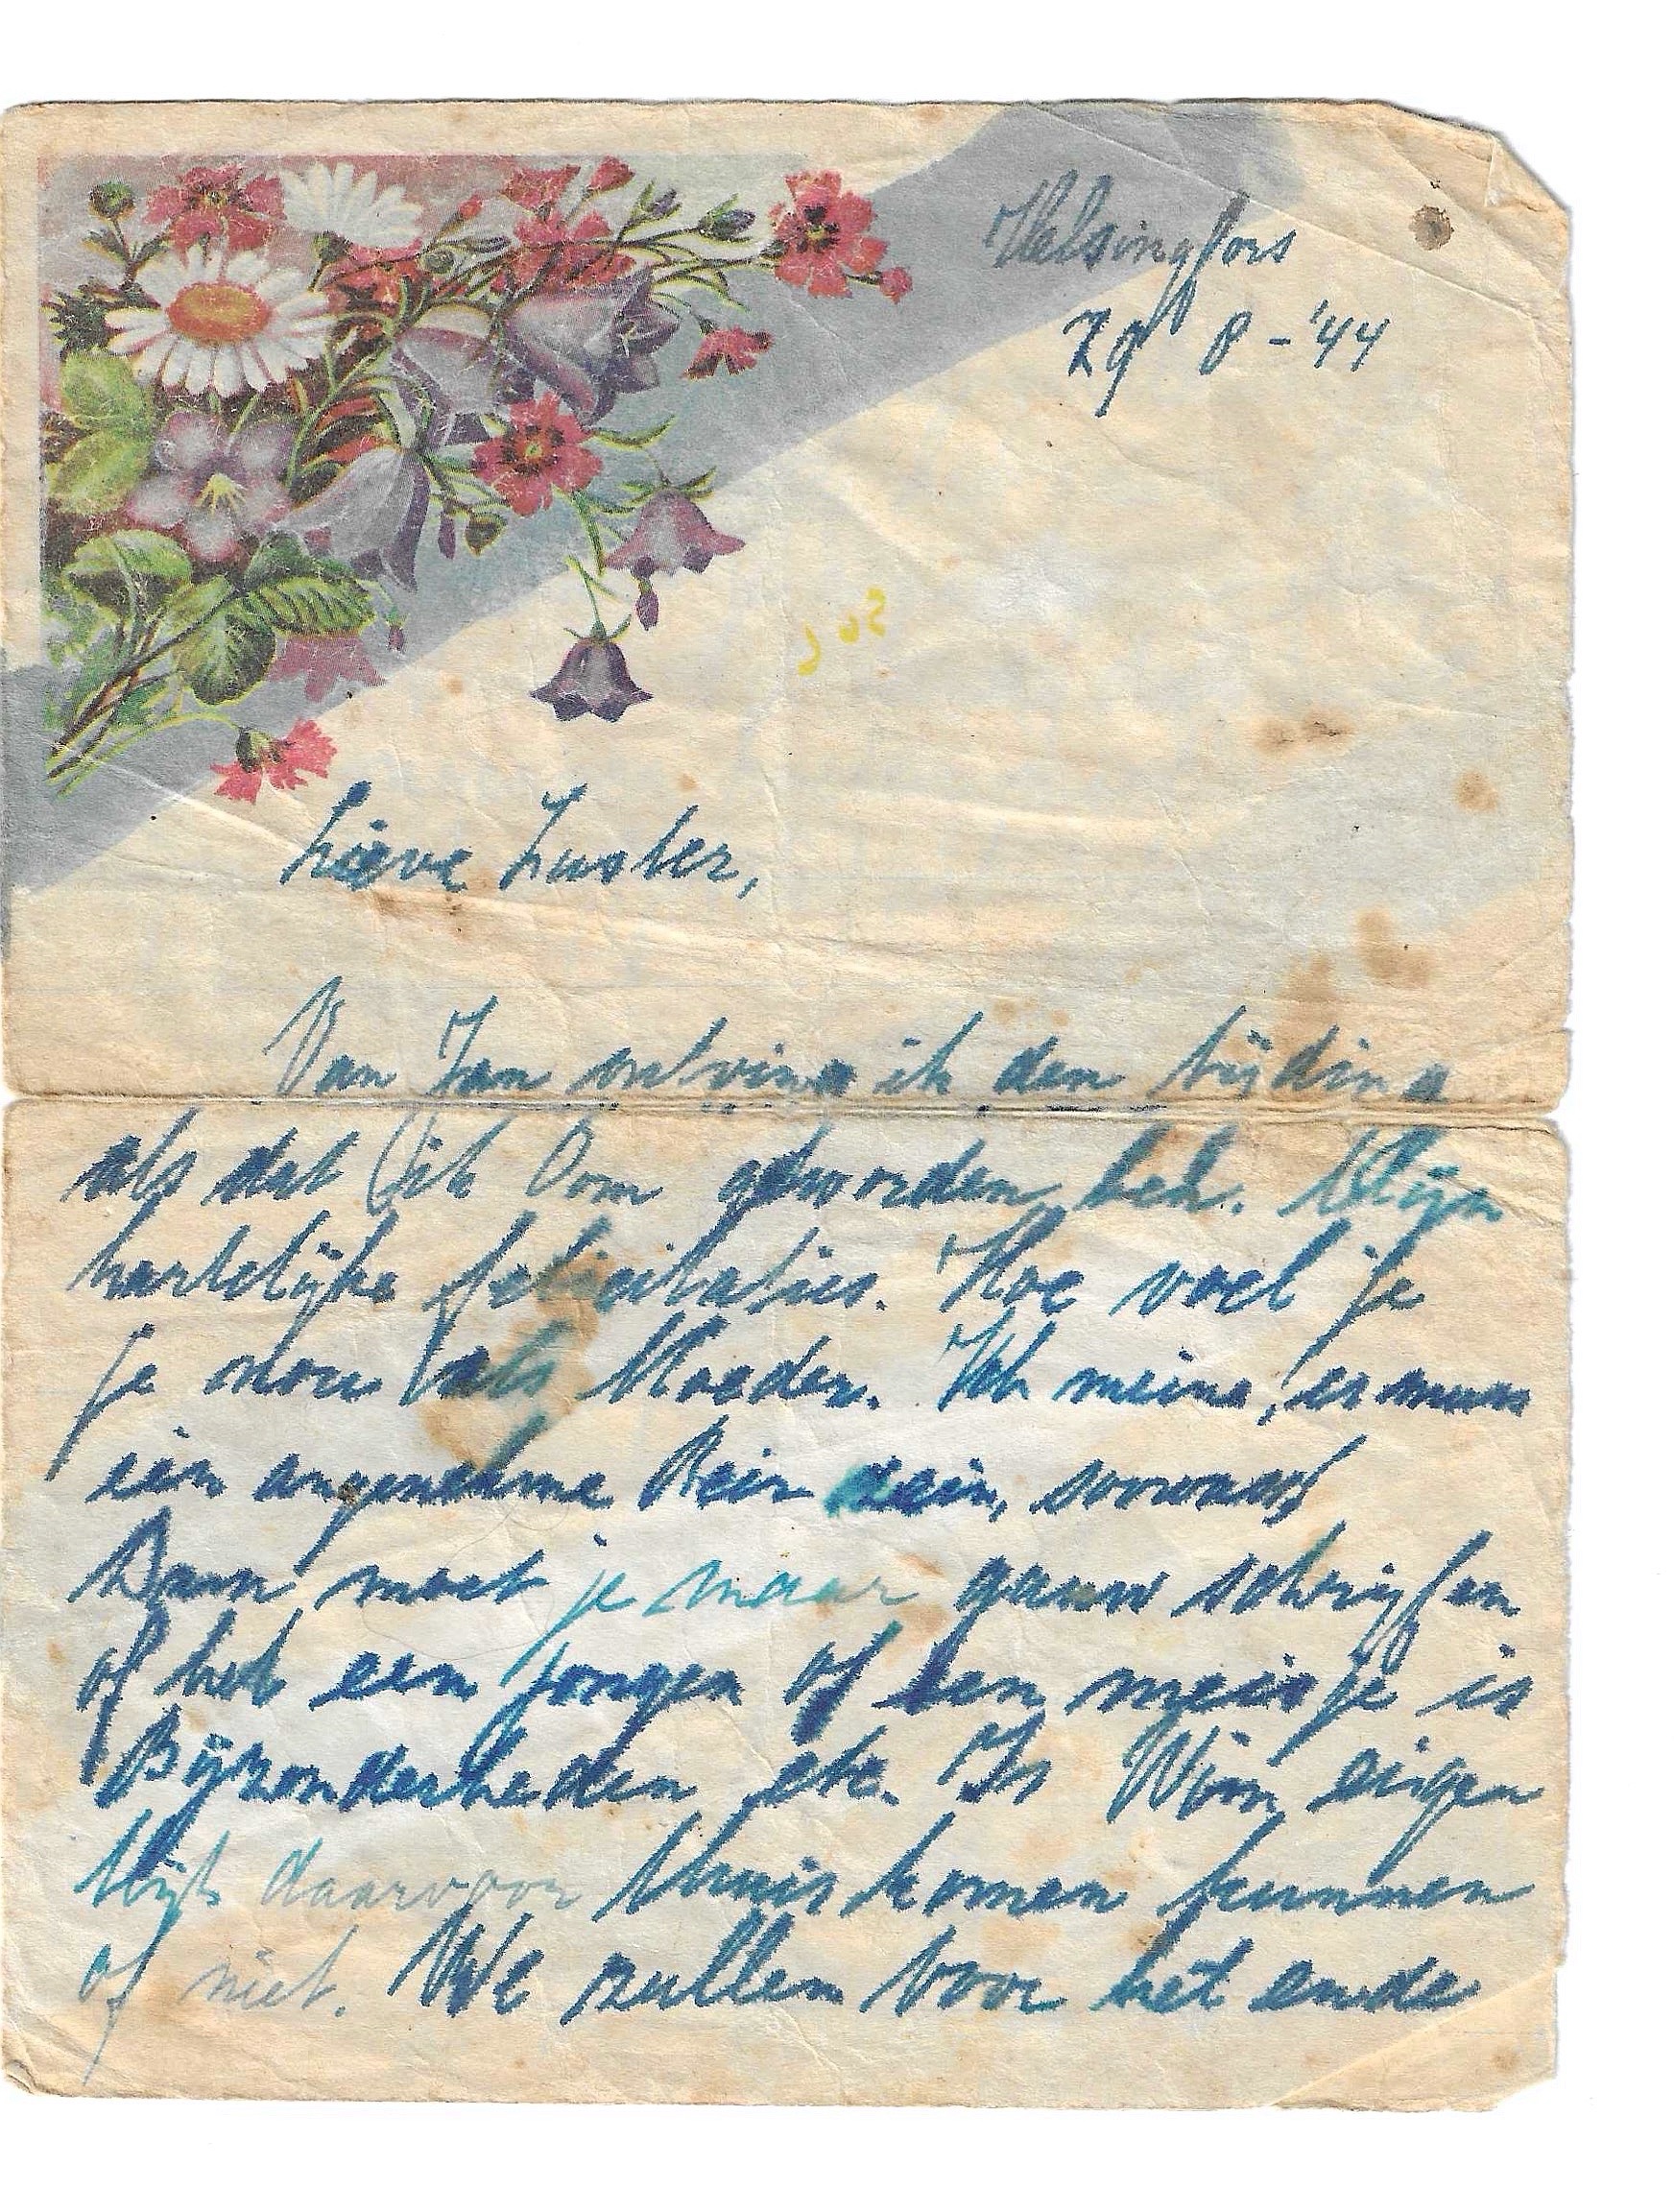 Helsingfors
29 8 - '44
Lieve Zuster,
Van Jan ontving ik den tijding
als dat ik Oom geworden ben. Mijn
hartelijke felicitaties. Hoe voel je
je nou als Moeder. Ik meine, es muss
ein angenehme Pein sein,
Dann moet je maar gauw schrijfen
of het een jongen of een meisje is
Bijzonderheden etc. Is Wim eigen
lijk daarvoor thuis komen kunnen
of niet. We zullen voor het ende